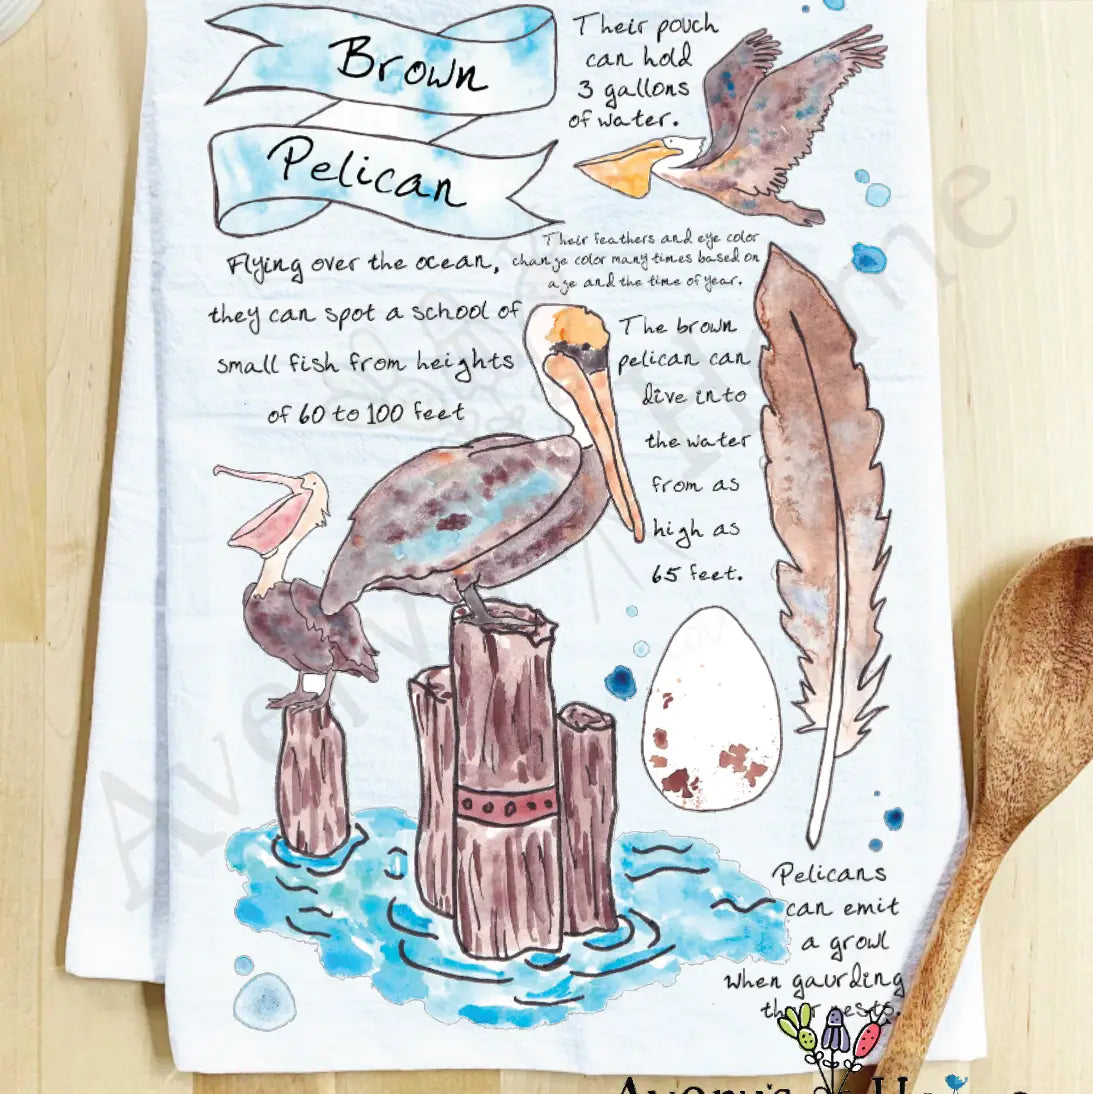 Brown
Pelican
Their pouch
can hold
3 gallons
of water.
Their feathers and eye color
change color many times based on
age and the time of year.
Flying over the ocean,
they can spot a school of
small fish from heights
of 60 to 100 feet
The brown
pelican can
dive into
the water
from as
high as
65 feet.
Pelicans
can emit
a growl
when gaurding
their nests.
Avery's Home
Avery's Home